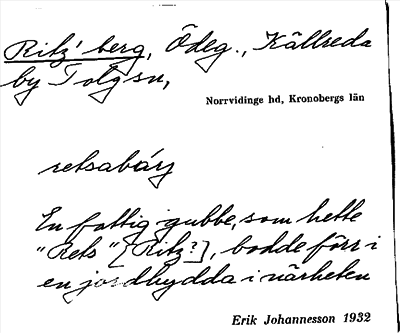 Ritz' berg, Ödeg., Källreda
by Tolg sn,
Norrvidinge hd, Kronobergs län
retsabárj
En fattig gubbe, som hette
"Rets" [Ritz?], bodde förr i
en jordhydda i närheten
Erik Johannesson 1932